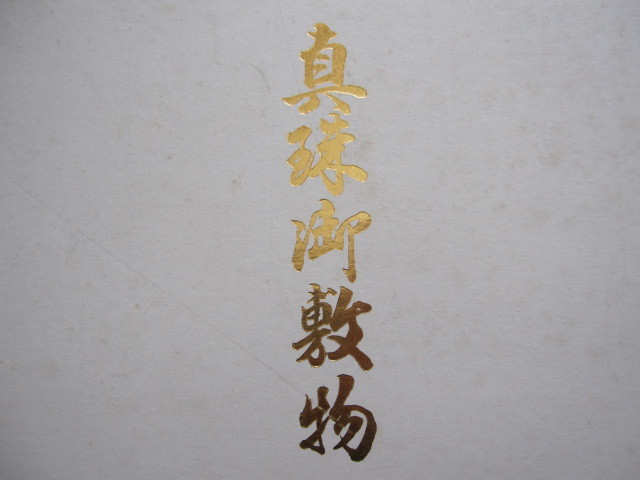 真珠御敷物